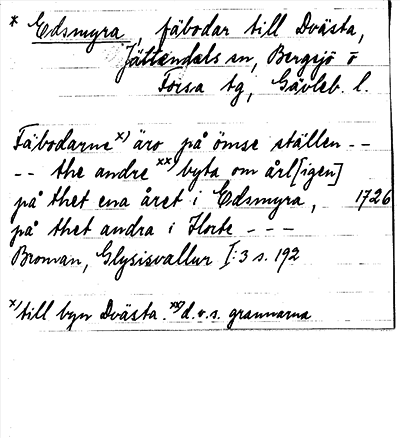 * Edsmyra, fäbodar till Dvästa,
Jättendals sn, Bergsjö o
Forsa tg, Gävleb. l.
Fäbodarne x) äro på ömse ställen --
-- the andre xx) byta om årl[igen]
på thet ena året i Edsmyra, 1726
på thet andra i Horte - - -
Broman, Glysisvallur I:3 s. 192
x) till byn Dvästa. xx) d.v.s. grannarna